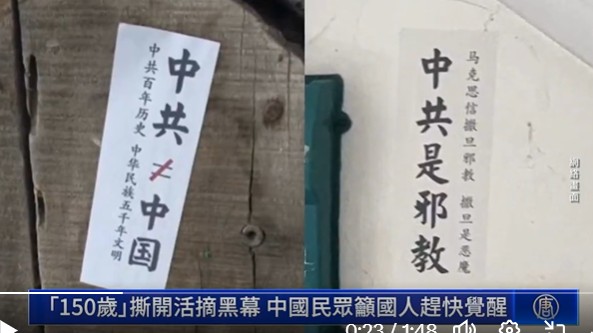 中共≠中国
中共百年历史 中华民族五千年文明
中共是邪教
马克思信撒旦邪教 撒旦是恶魔
網絡畫面
「150歲」撕開活摘黑幕 中國民眾籲國人趕快覺醒
唐
0:23 / 1:48